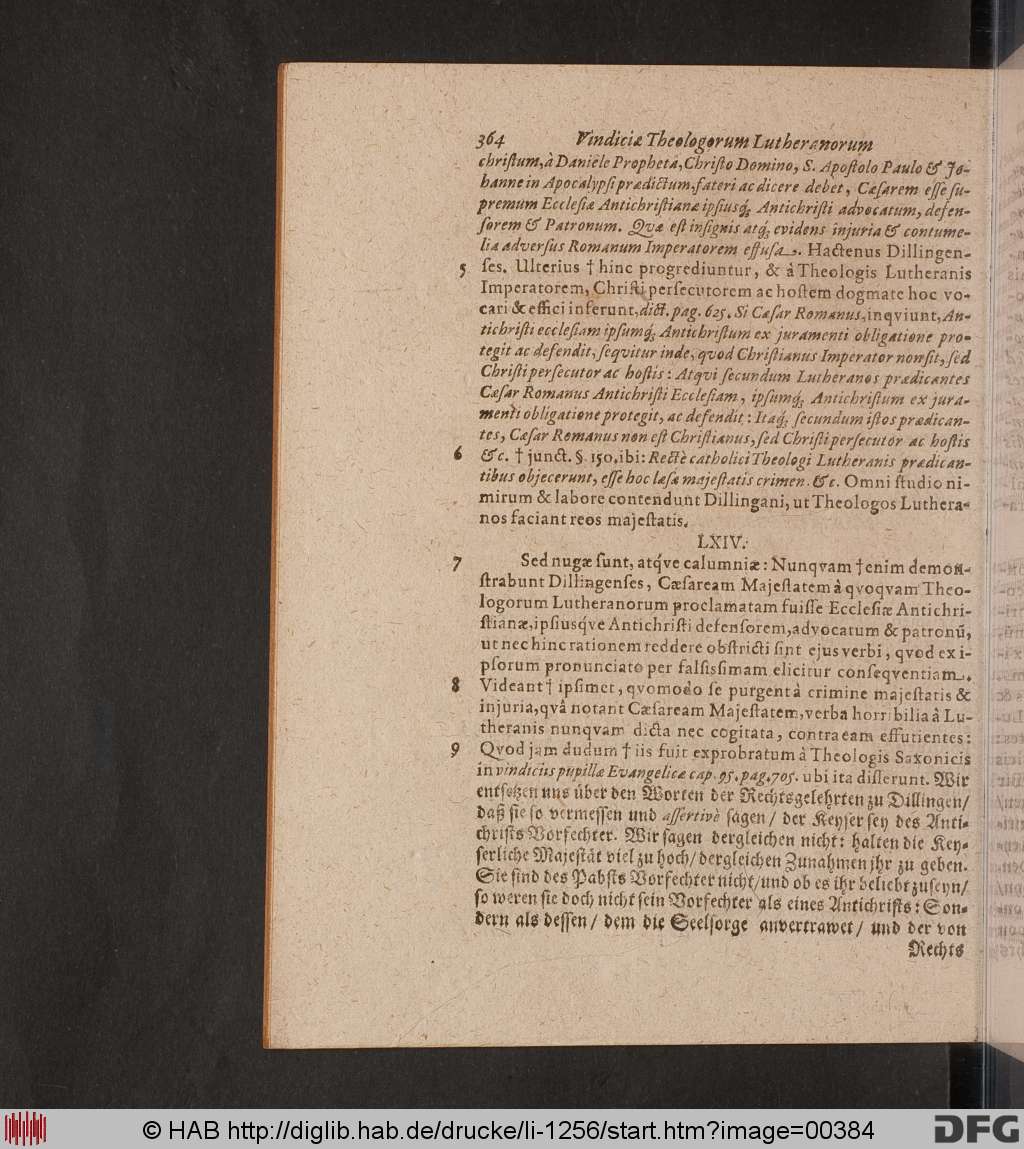 364 Vindiciæ Theologorum Lutheranorum
christum, à Daniele Prophetâ, Christo Domino, S. Apostolo Paulo & Jo-
hanne in Apocalypsi prædictum, fateri ac dicere debet, Cæsarem esse su-
premum Ecclesiæ Antichristianæ ipsiusq; Antichristi advocatum, defen-
sorem & Patronum. Quæ est insignis atq; evidens injuria & contume-
lia adversus Romanum Imperatorem effusa. Hactenus Dillingen-
5 ses. Ulterius † hinc progrediuntur, & à Theologis Lutheranis
Imperatorem, Christi persecutorem ac hostem dogmate hoc vo-
cari & effici inferunt, dict. pag. 625. Si Cæsar Romanus, inqviunt, An-
tichristi ecclesiam ipsumq; Antichristum ex juramenti obligatione pro-
tegit ac defendit, seqvitur inde, qvod Christianus Imperator non sit, sed
Christi persecutor ac hostis: Atqvi secundum Lutheranos prædicantes
Cæsar Romanus Antichristi Ecclesiam, ipsumq; Antichristum ex jura-
menti obligatione protegit, ac defendit: Itaq; secundum istos prædican-
tes, Cæsar Romanus non est Christianus, sed Christi persecutor ac hostis
6 &c. † junct. §. 150. ibi: Rectè catholici Theologi Lutheranis prædican-
tibus objecerunt, esse hoc læsæ majestatis crimen. &c. Omni studio ni-
mirum & labore contendunt Dillingani, ut Theologos Luthera-
nos faciant reos majestatis.
LXIV.
7 Sed nugæ sunt, atq́ve calumniæ: Nunqvam † enim demon-
strabunt Dillingenses, Cæsaream Majestatem à qvoqvam Theo-
logorum Lutheranorum proclamatam fuisse Ecclesiæ Antichri-
stianæ, ipsiusq́ve Antichristi defensorem, advocatum & patronũ,
ut nec hinc rationem reddere obstricti sint ejus verbi, qvod ex i-
psorum pronunciato per falsissimam elicitur conseqventiam.
8 Videant † ipsimet, qvomodo se purgent à crimine majestatis &
injuria, qvâ notant Cæsaream Majestatem, verba horribilia â Lu-
theranis nunqvam dicta nec cogitata, contra eam effutientes:
9 Qvod jam dudum † iis fuit exprobratum à Theologis Saxonicis
in vindiciis pupillæ Evangelicæ cap. 95. pag. 705. ubi ita disserunt. Wir
entsetzen uns über den Worten der Rechtsgelehrten zu Dillingen/
daß sie so vermessen und assertivè sagen/ der Keyser sey des Anti-
christs Vorfechter. Wir sagen dergleichen nicht: halten die Key-
serliche Majestät viel zu hoch/ dergleichen Zunahmen jhr zu geben.
Sie sind des Pabsts Vorfechter nicht/ und ob es ihr beliebt zu seyn/
so weren sie doch nicht sein Vorfechter als eines Antichrists: Son-
dern als dessen/ dem die Seelsorge anvertrawet/ und der von
Rechts
© HAB http://diglib.hab.de/drucke/li-1256/start.htm?image=00384
DFG